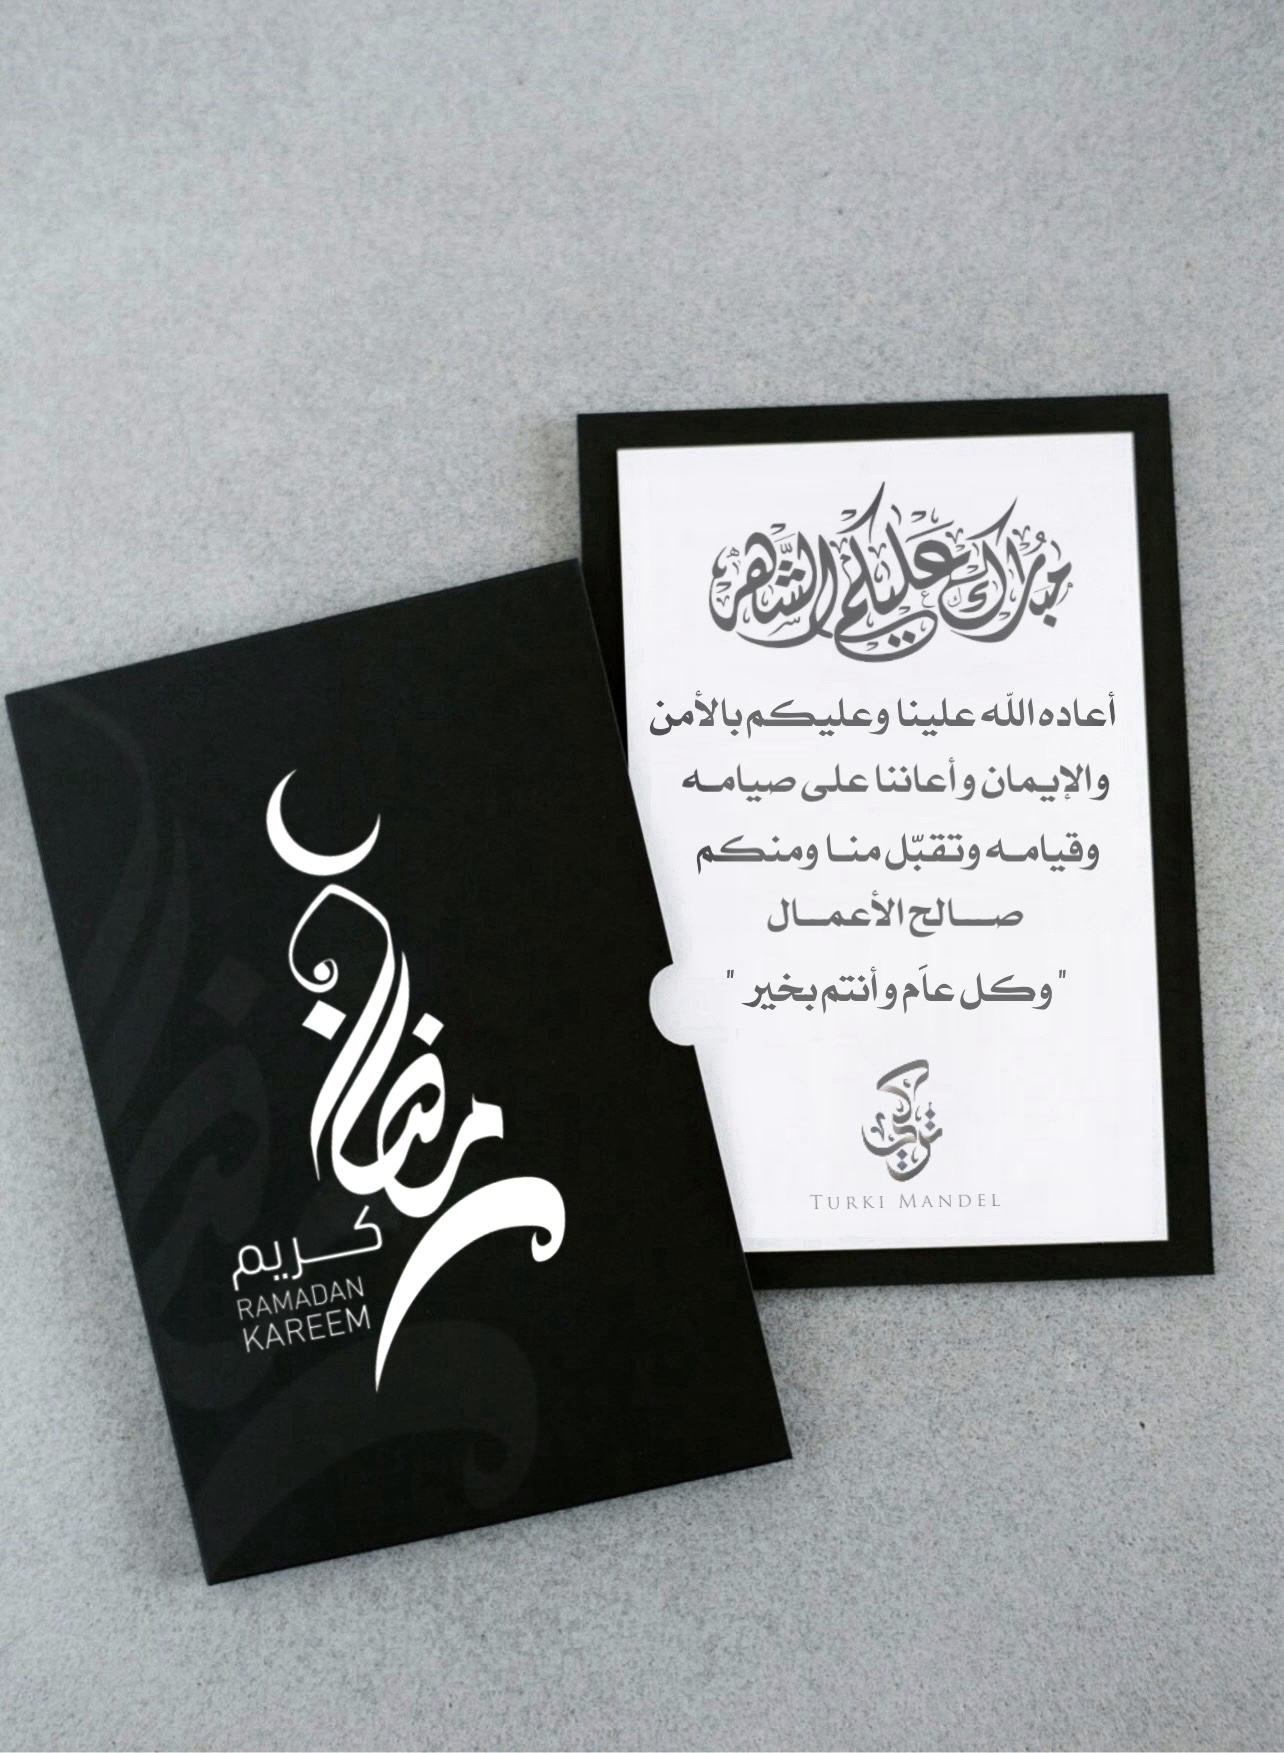 رمضان
كريم
RAMADAN
KAREEM
مبارك عليكم الشهر
أعاده الله علينا وعليكم بالأمن
والإيمان وأعاننا على صيامه
وقيامه وتقبّل منا ومنكم
صالح الأعمال
"وكل عاَم وأنتم بخير "
تركي
TURKI MANDEL